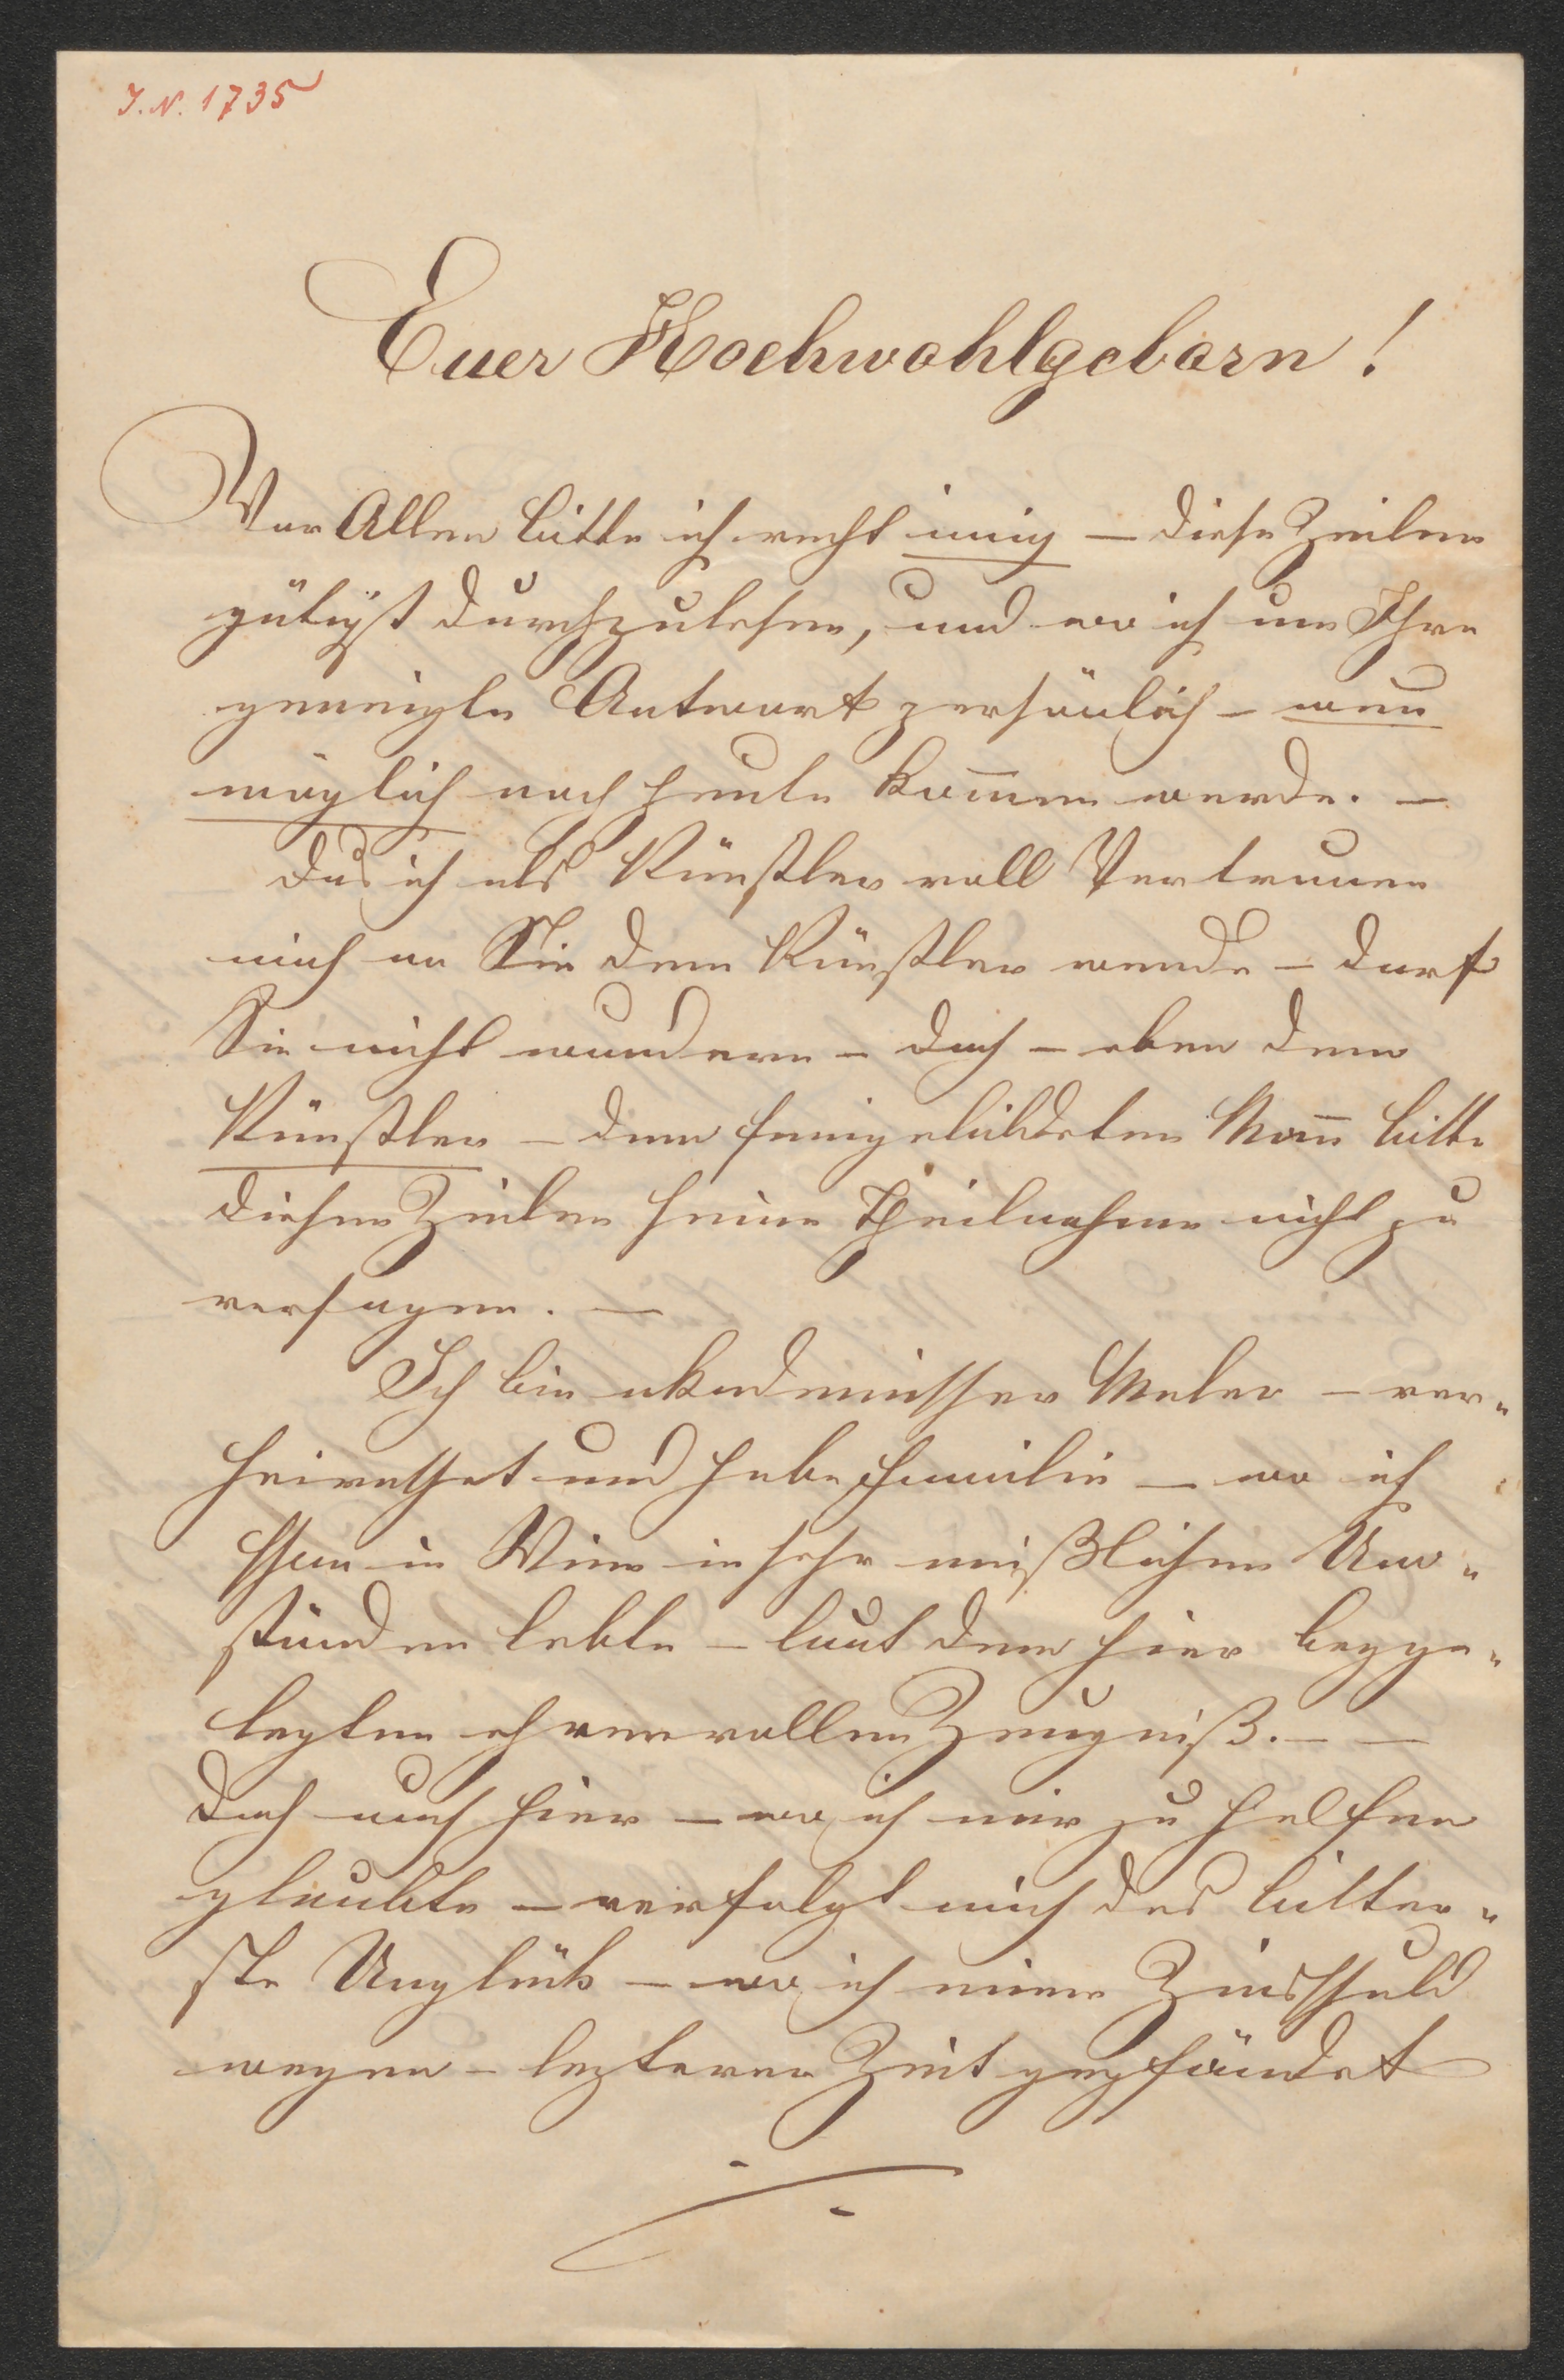 J. N. 1735
Euer Hochwohlgeborn!
Vor Allen bitte ich recht innig – diese Zeilen
gütigst durchzulesen, und wo ich um Ihre
geneigte Antwort persönlich – wen
möglich noch heute kom̅en werde. –
Das ich als Künstler voll Vertrauen
mich an Sie dem Künstler wende – darf
Sie nicht wundern – doch – eben dem
Künstler – dem feingebildeten Man̅ bitte
diesen Zeilen seine Theilnahme nicht zu
versagen. –
Ich bin akademischer Maler – ver„
heirathet und habe Familie – wo ich
schon in Wien in sehr mißlichen Um„
ständen lebte – laut dem hier beyge„
legten ehrenvollen Zeugniß. – –
Doch auch hier – wo ich mir zu helfen
glaubte – verfolgt mich das bitter„
ste Unglück – wo ich meine Zinsschuld
wegen – lezterer Zeit gepfändet